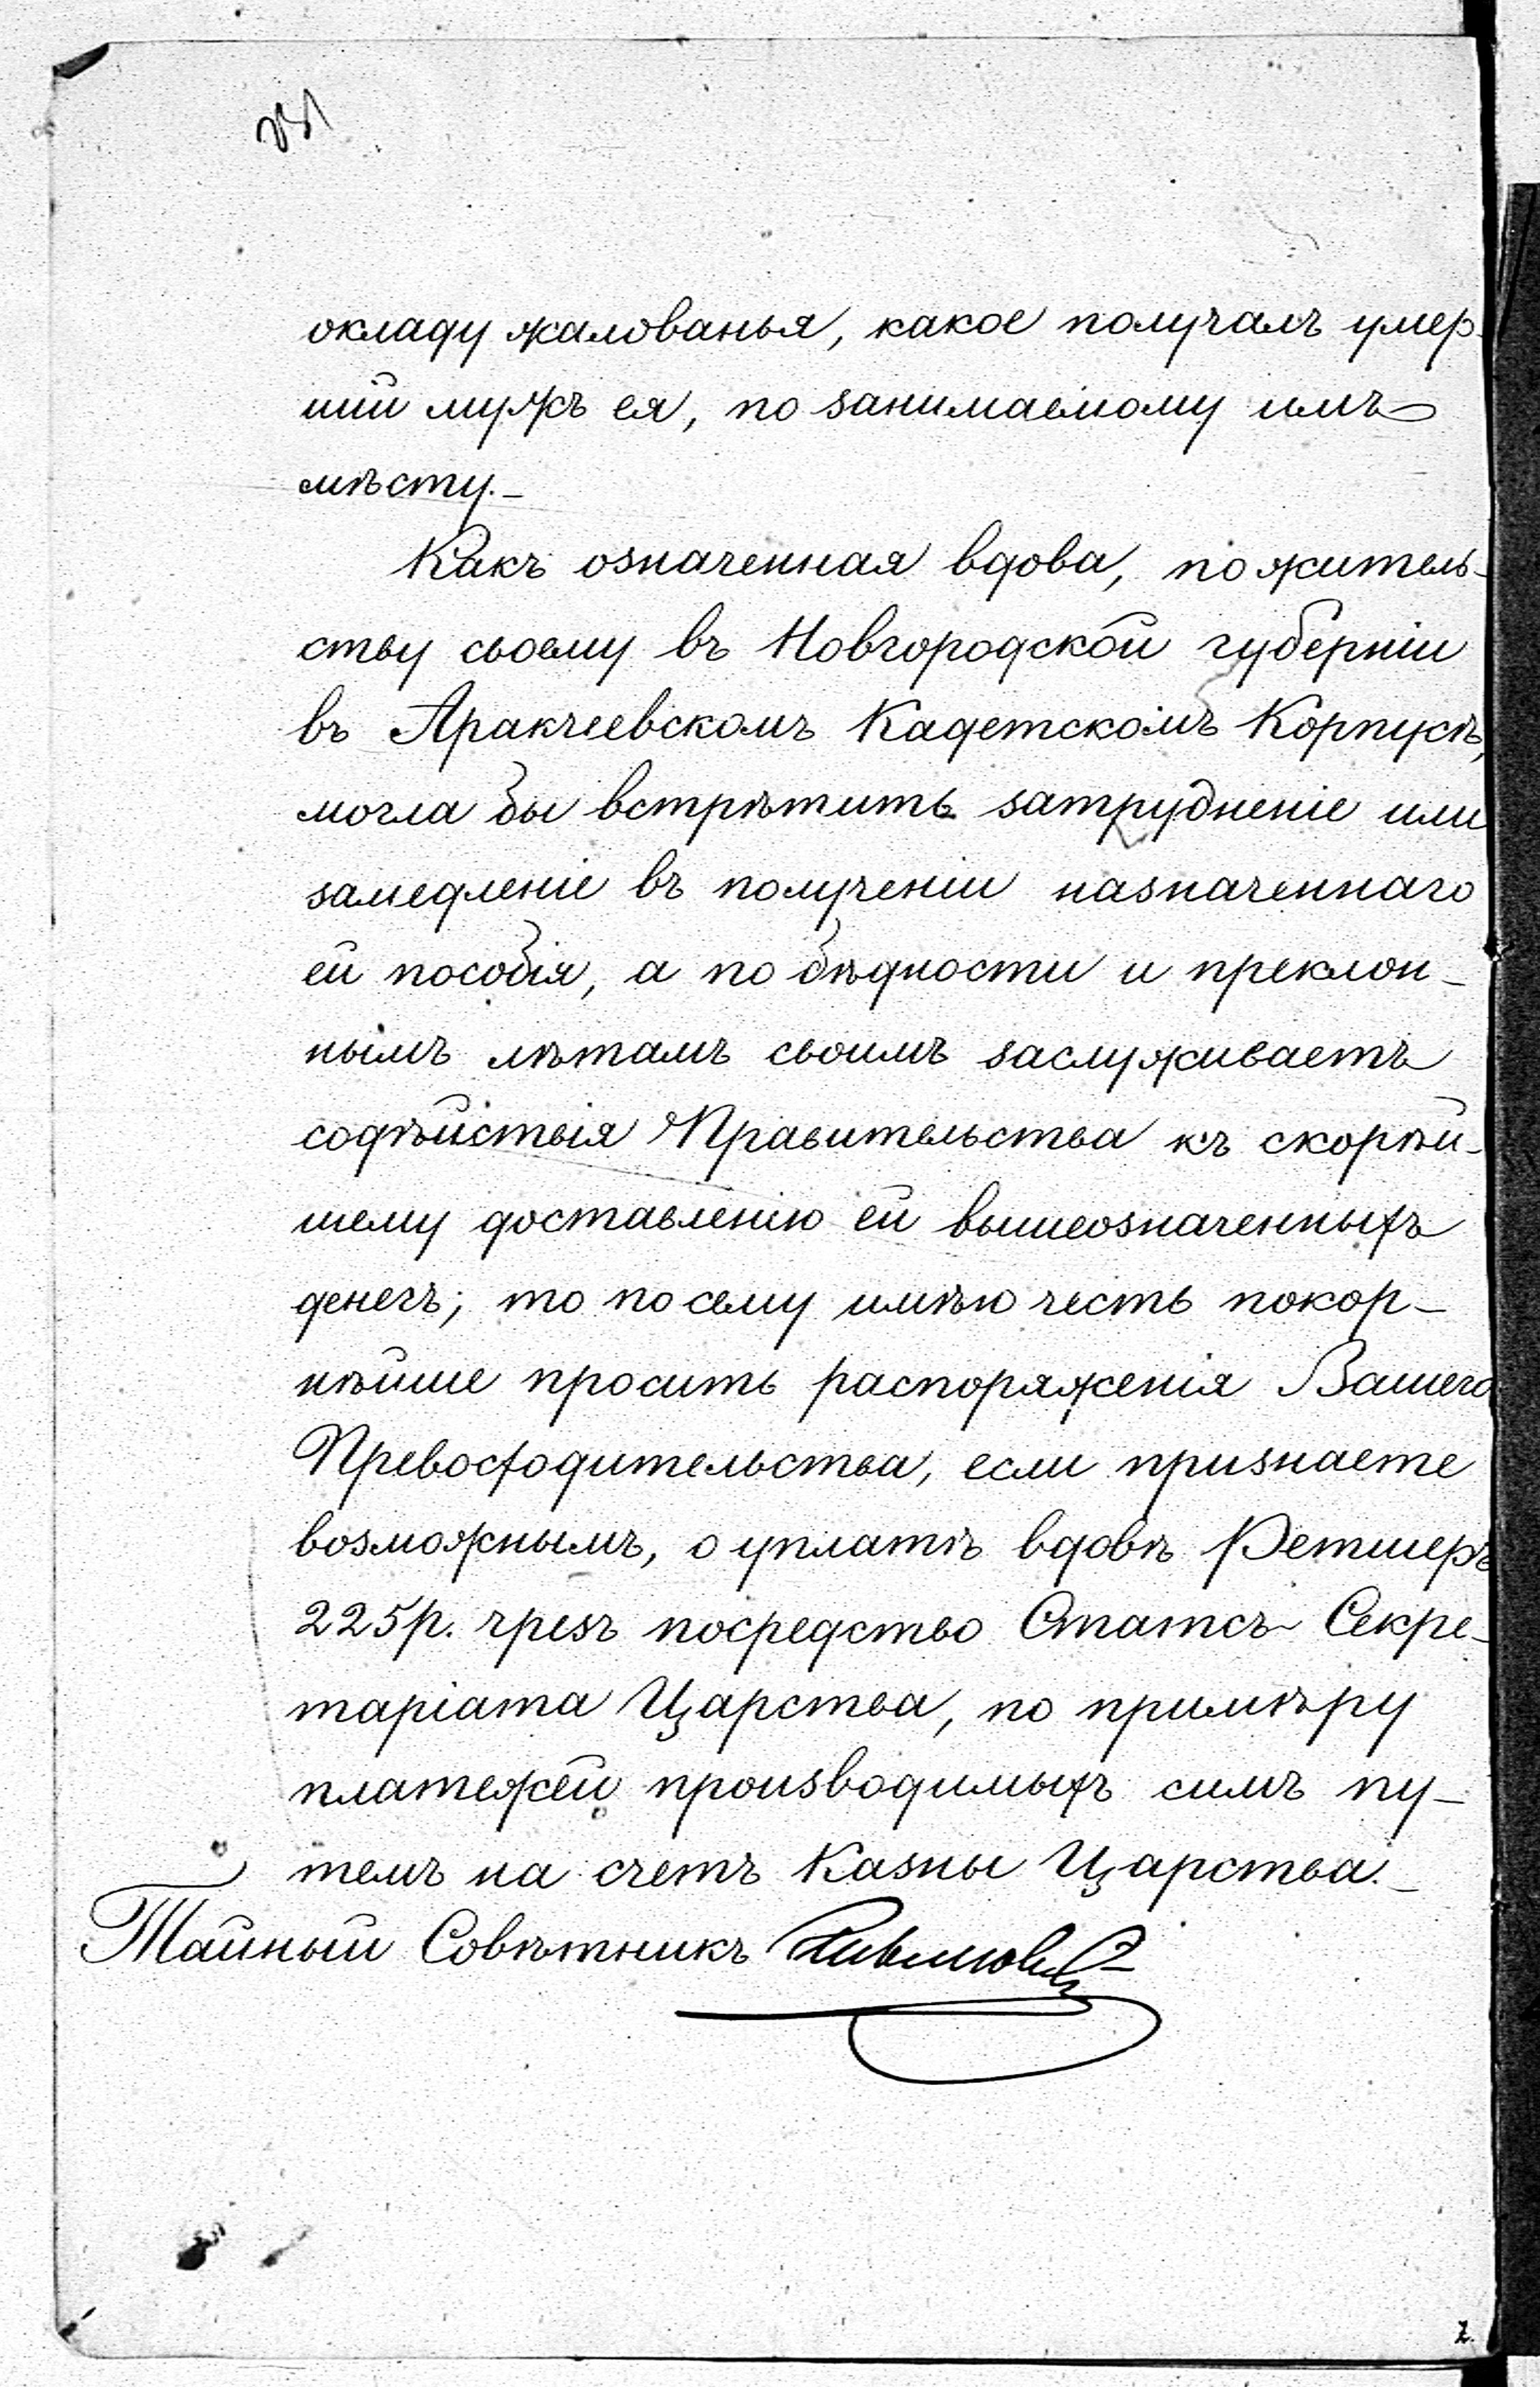 окладу жалованья, какое получалъ умер-
шій мужъ ея, по занимаемому имъ
мѣсту.-
Какъ означенная вдова, по житель-
ству своему въ Новгородской губерніи
въ Аракчеевскомъ Кадетскомъ Корпусѣ,
могла бы встрѣтить затрудненіе или
замедленіе въ полученіи назначеннаго
ей пособія, а по бѣдности и преклон-
нымъ лѣтамъ своимъ заслуживаетъ
содѣйствія Правительства къ скорѣй-
шему доставленію ей вышеозначенныхъ
денегъ; то по сему имѣю честь покор-
нѣйше просить распоряженія Вашего
Превосходительства, если признаете
возможнымъ, о уплатѣ вдовѣ Ретшеръ
225 р. чрезъ посредство Статсъ-Секре-
таріата Царства, по примѣру
платежей производимыхъ симъ пу-
темъ на счетъ Казны Царства.-
Тайный Совѣтникъ
2.